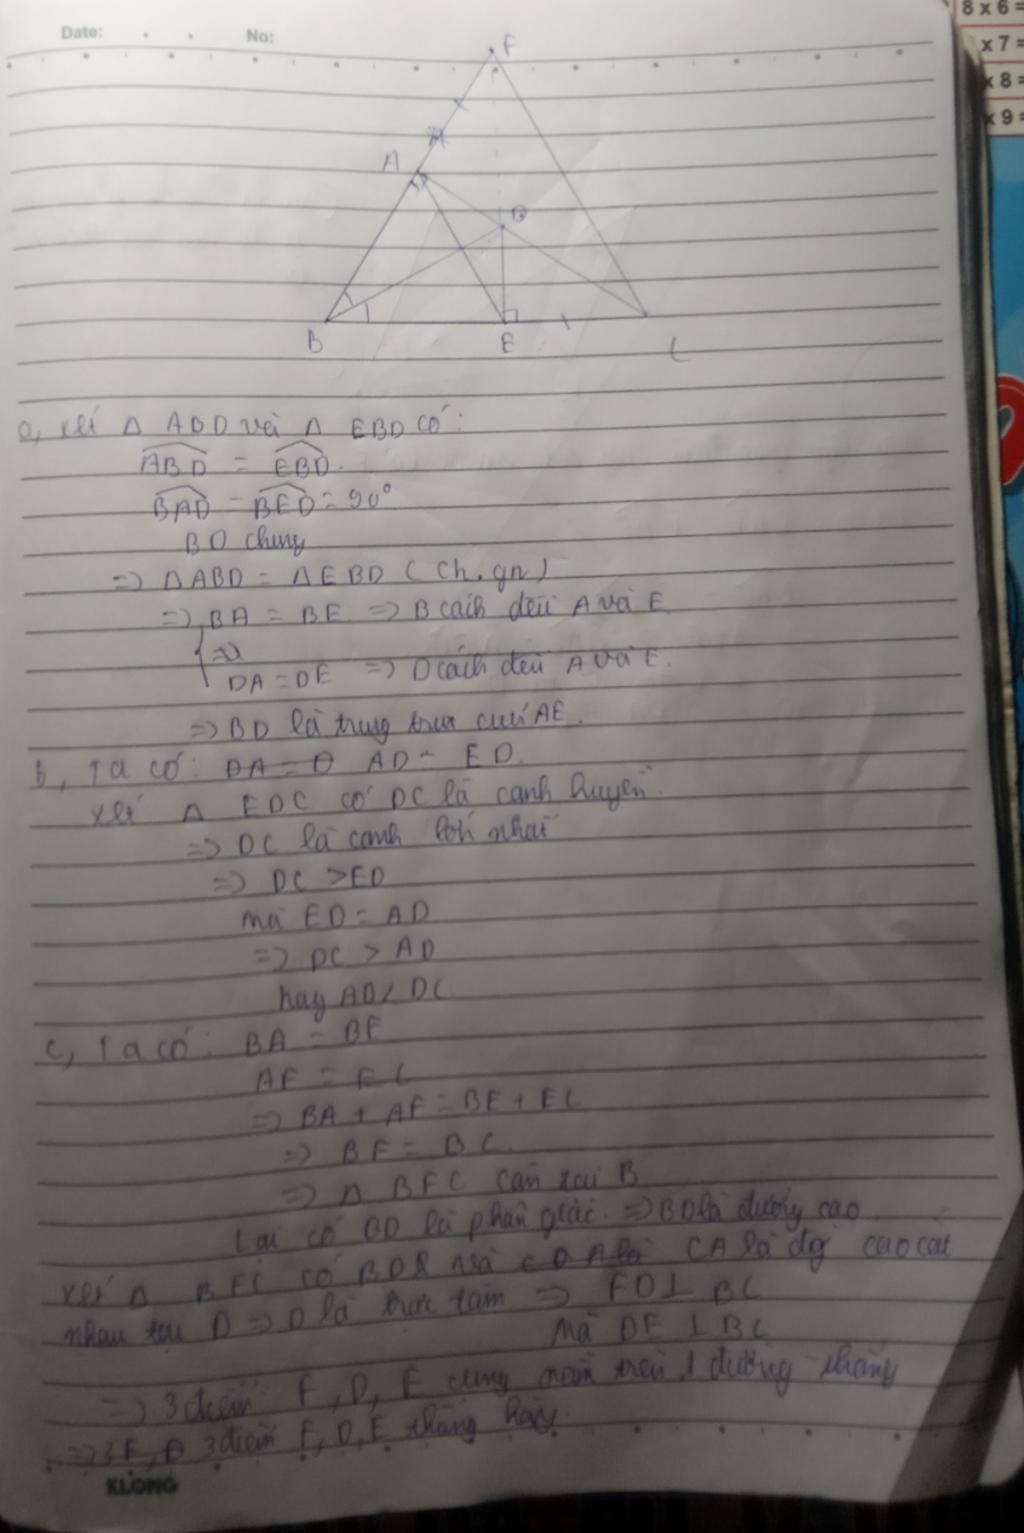 Date:
No:
8 x 6 =
x 7 =
x 8 =
x 9 =
F
A
D
B
E
C
a, xét Δ ABD và Δ EBD có:
ABD = EBD.
BAD = BED = 90°
BD chung
=> ΔABD = ΔEBD (Ch.gn)
=> BA = BE => B cách đều A và E.
DA = DE => D cách đều A và E.
=> BD là trung trực của AE.
b, Ta có: AD = ED.
xét Δ EDC có DC là cạnh huyền
=> DC là cạnh lớn nhất
=> DC > ED
mà ED = AD
=> DC > AD
hay AD < DC
c, Ta có: BA = BE
AF = EC
=> BA + AF = BE + EC
=> BF = BC.
=> Δ BFC cân tại B
Lại có BD là phân giác. => BD là đường cao
xét Δ BFC có BD và CA là đg cao cắt
nhau tại D => D là trực tâm => FD ⊥ BC
Mà DE ⊥ BC
=> 3 điểm F, D, E cùng nằm trên 1 đường thẳng
=> 3 điểm F, D, E thẳng hàng.
KLONG